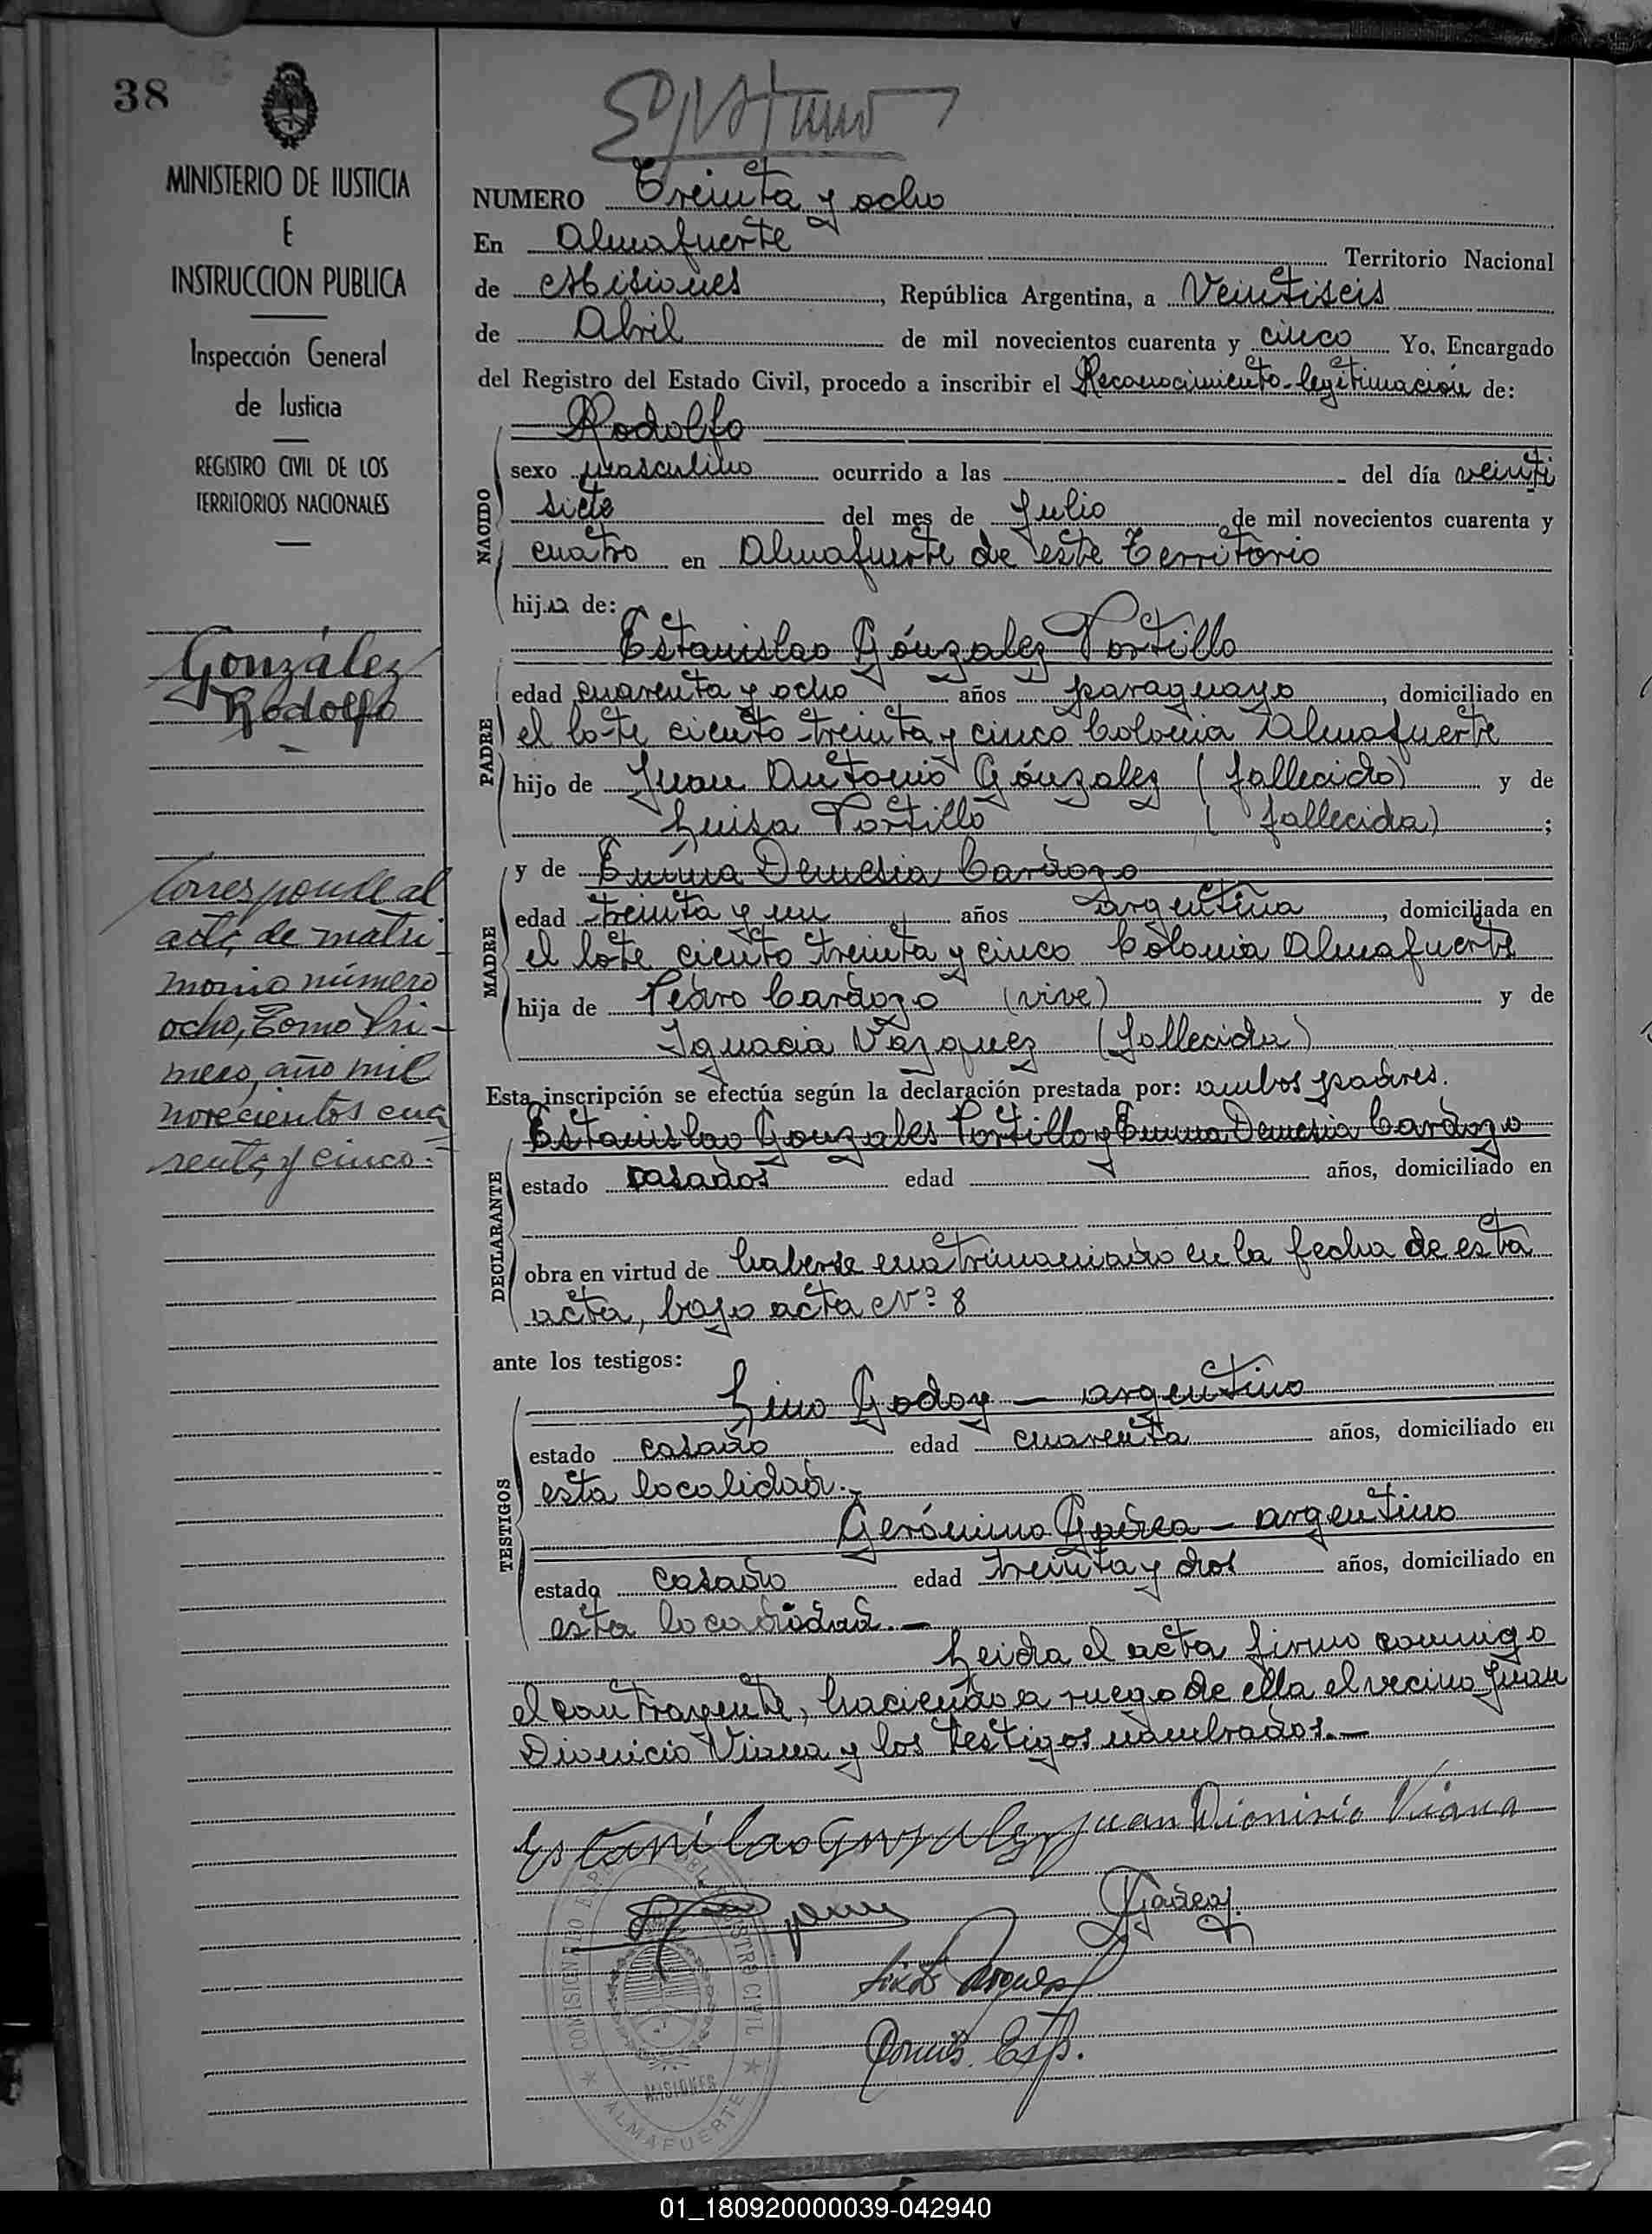 38
MINISTERIO DE JUSTICIA
E
INSTRUCCION PUBLICA
Inspección General
de Justicia
REGISTRO CIVIL DE LOS
TERRITORIOS NACIONALES
González
Rodolfo
Corresponde al
acta de matri
monio número
ocho, Tomo Pri-
mero, año mil
novecientos cua
renta y cinco.-
NUMERO Treinta y ocho
En Almafuerte Territorio Nacional
de Misiones, República Argentina, a Veintiseis
de Abril de mil novecientos cuarenta y cinco Yo, Encargado
del Registro del Estado Civil, procedo a inscribir el Reconocimiento-legitimación de:
Rodolfo
NACIDO
sexo masculino ocurrido a las - del día veinti
siete del mes de Julio de mil novecientos cuarenta y
cuatro en Almafuerte de este Territorio
hijo de:
Estanislao Gónzalez Portillo
PADRE
edad cuarenta y ocho años paraguayo, domiciliado en
el lote ciento treinta y cinco Colonia Almafuerte
hijo de Juan Antonio Gónzalez (fallecido) y de
Luisa Portillo (fallecida) ;
y de Emma Demesia Cardozo
MADRE
edad treinta y un años argentina, domiciliada en
el lote ciento treinta y cinco Colonia Almafuerte
hija de Pedro Cardozo (vive) y de
Ignacia Vazquez (fallecida)
Esta inscripción se efectúa según la declaración prestada por: ambos padres.
Estanislao Gonzales Portillo y Emma Demesia Cardozo
DECLARANTE
estado casados edad años, domiciliado en
obra en virtud de haberse matrimoniado en la fecha de esta
acta, bajo acta Nº 8
ante los testigos:
Lino Godoy - argentino
TESTIGOS
estado casado edad cuarenta años, domiciliado en
esta localidad.-
Gerónimo - argentino
estado casado edad treinta y dos años, domiciliado en
esta localidad.-
Leida el acta firmo conmigo
el contrayente, haciendo a ruego de ella el vecino Juan
Dionicio Viana y los testigos nombrados.-
Estanilao Gonzalez Juan Dionisio Viana
Comis. Esp.
COMISIONADO ESP. DEL REGISTRO CIVIL
MISIONES
ALMAFUERTE
01_180920000039-042940